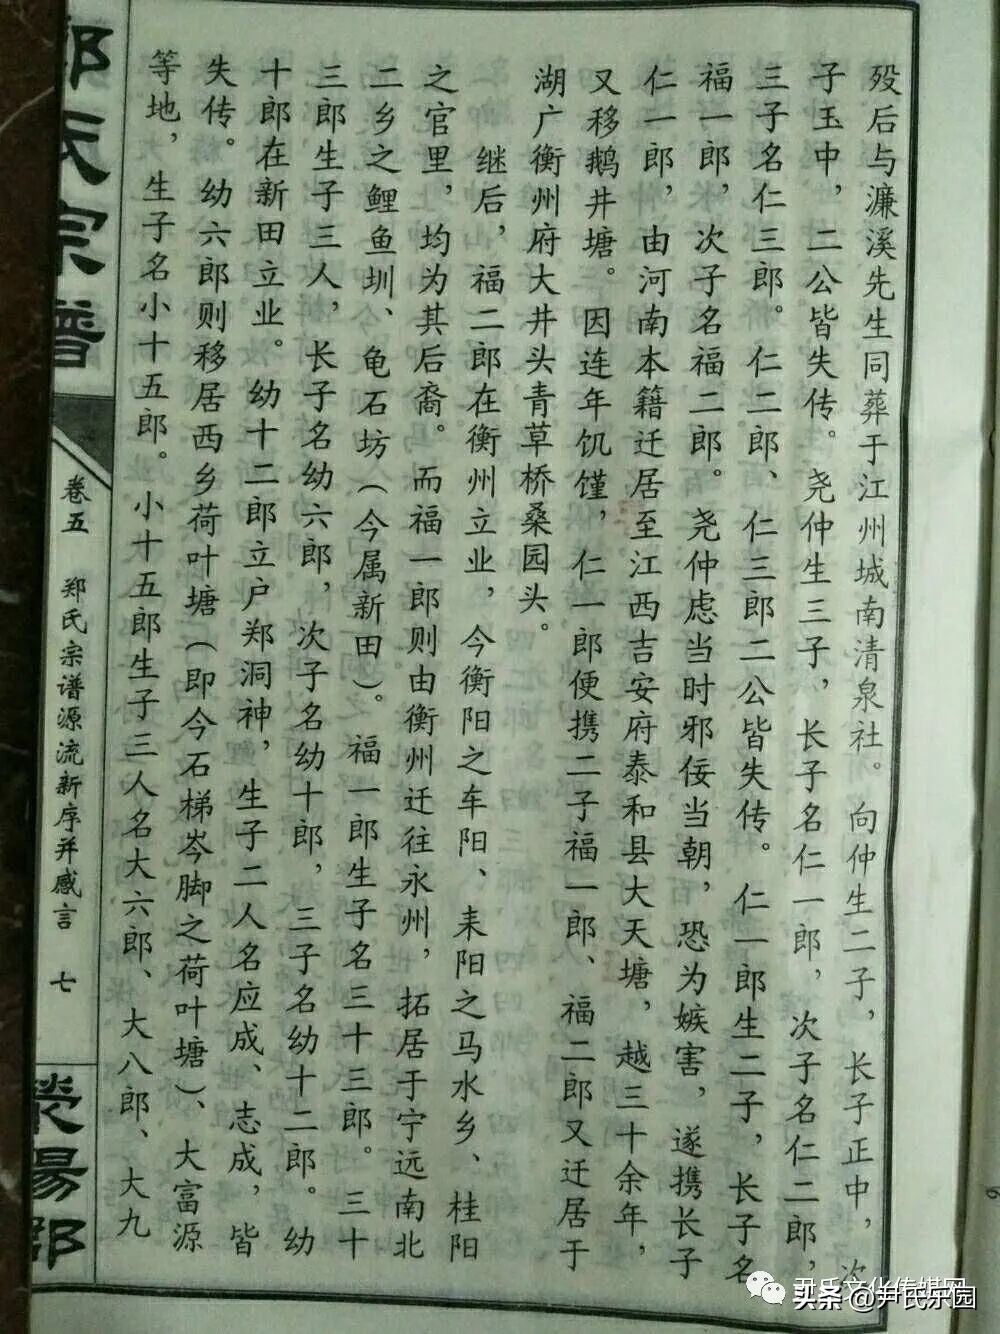 殁后与濂溪先生同葬于江州城南清泉社。向仲生二子，长子正中，次
子玉中，二公皆失传。尧仲生三子，长子名仁一郎，次子名仁二郎，
三子名仁三郎。仁二郎、仁三郎二公皆失传。仁一郎生二子，长子名
福一郎，次子名福二郎。尧仲虑当时邪佞当朝，恐为嫉害，遂携长子
仁一郎，由河南本籍迁居至江西吉安府泰和县大天塘，越三十余年，
又移鹅井塘。因连年饥馑，仁一郎便携二子福一郎、福二郎又迁居于
湖广衡州府大井头青草桥桑园头。
继后，福二郎在衡州立业，今衡阳之车阳、耒阳之马水乡、桂阳
之官里，均为其后裔。而福一郎则由衡州迁往永州，拓居于宁远南北
二乡之鲤鱼圳、龟石坊（今属新田）。福一郎生子名三十三郎。三十
三郎生子三人，长子名幼六郎，次子名幼十郎，三子名幼十二郎。幼
十郎在新田立业。幼十二郎立户郑洞神，生子二人名应成、志成，皆
失传。幼六郎则移居西乡荷叶塘（即今石梯岑脚之荷叶塘）、大富源
等地，生子名小十五郎。小十五郎生子三人名大六郎、大八郎、大九
郑氏宗谱
卷五
郑氏宗谱源流新序并感言
七
荥阳郡
尹氏文化传媒网
头条 @尹氏乐园